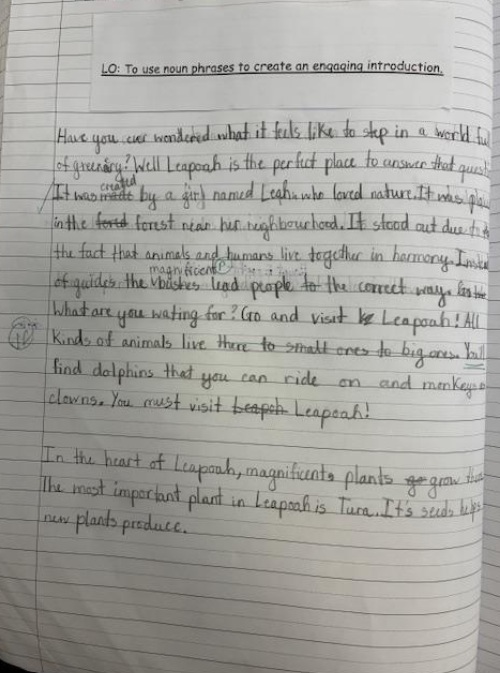 LO: To use noun phrases to create an engaging introduction.
Have you ever wondered what it feels like to step in a world ful
of greenary? Well Leapoah is the perfect place to answer that quest
created
It was made by a girl named Leah who loved nature. It was pla
in the forest near her neighbourhood. It stood out due to
the fact that animals and humans live together in harmony. Instea
magnificent
of guides the bushes lead people to the correct way.
What are you wating for? Go and visit Leapoah! All
Kinds of animals live there to small ones to big ones. You'll
find dolphins that you can ride on and monkeys
clowns. You must visit Leapoh Leapoah!
In the heart of Leapoah, magnificents plants go grow the
The most important plant in Leapoah is Tura. It's seeds helps
new plants produce.